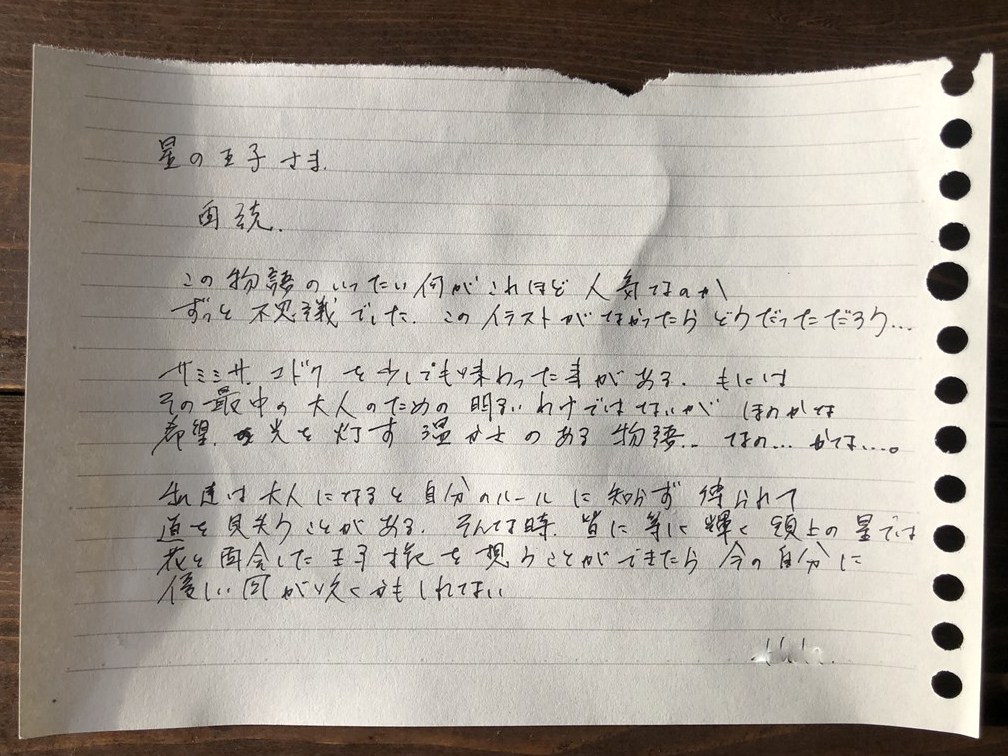 星の王子さま.
この物語のいったい何がこれほど人気なのか
ずっと不思議でした. このイラストがなかったらどうだっただろう...
サミシサ. コドクを少しでも味わった事がある. もしくは
その最中の大人のための明るいわけではないが ほのかな
希望. 光を灯す温かさのある物語.. なの... かな....。
私達は大人になると自分のルールに知らず縛られて
道を見失うことがある. そんな時. 皆に等しく輝く頭上の星では
花と再会した王子様を想うことができたら今の自分に
優しい風が吹くかもしれない